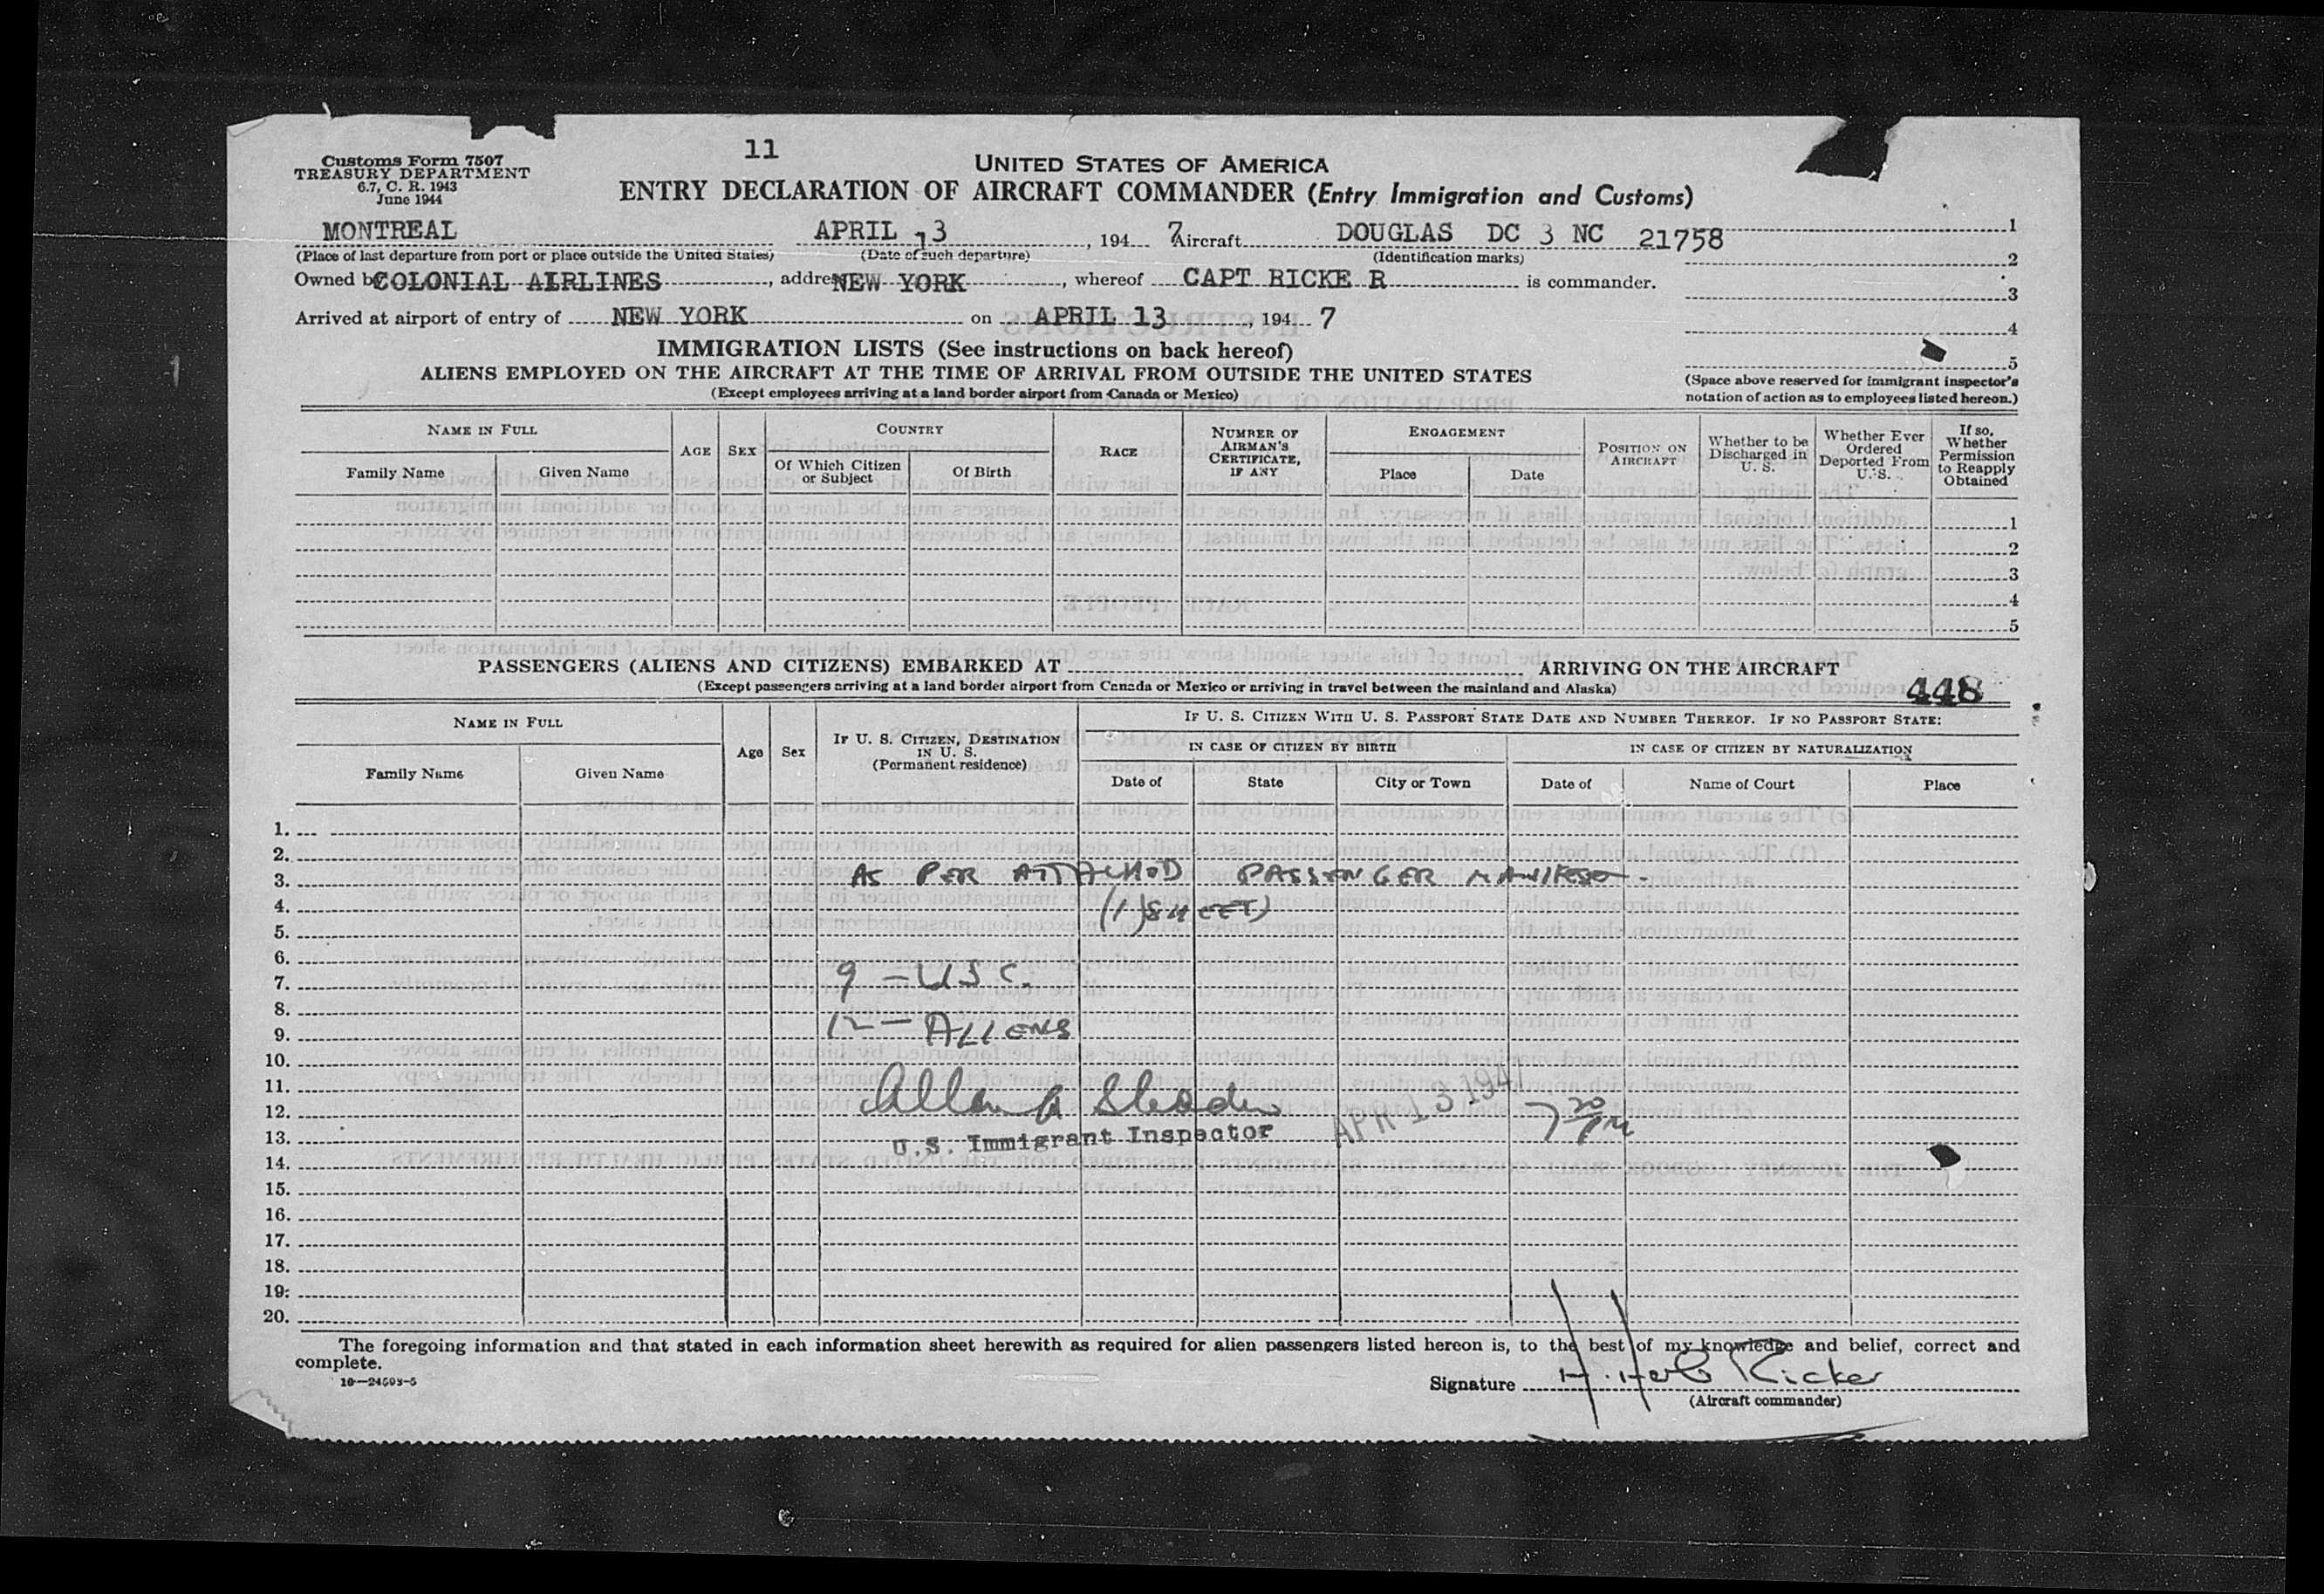 11
Customs Form 7507
TREASURY DEPARTMENT
6.7, C. R. 1943
June 1944
UNITED STATES OF AMERICA
ENTRY DECLARATION OF AIRCRAFT COMMANDER (Entry Immigration and Customs)
MONTREAL APRIL 13, 194 7 Aircraft DOUGLAS DC 3 NC 21758
(Place of last departure from port or place outside the United States) (Date of such departure) (Identification marks)
Owned by COLONIAL AIRLINES, address NEW YORK, whereof CAPT RICKE R is commander.
Arrived at airport of entry of NEW YORK on APRIL 13, 194 7
1
2
3
4
5
(Space above reserved for immigrant inspector's
notation of action as to employees listed hereon.)
IMMIGRATION LISTS (See instructions on back hereof)
ALIENS EMPLOYED ON THE AIRCRAFT AT THE TIME OF ARRIVAL FROM OUTSIDE THE UNITED STATES
(Except employees arriving at a land border airport from Canada or Mexico)
NAME IN FULL
Family Name
Given Name
AGE
SEX
COUNTRY
Of Which Citizen
or Subject
Of Birth
RACE
NUMBER OF
AIRMAN'S
CERTIFICATE,
IF ANY
ENGAGEMENT
Place
Date
POSITION ON
AIRCRAFT
Whether to be
Discharged in
U. S.
Whether Ever
Ordered
Deported From
U. S.
If so,
Whether
Permission
to Reapply
Obtained
1
2
3
4
5
PASSENGERS (ALIENS AND CITIZENS) EMBARKED AT ARRIVING ON THE AIRCRAFT
(Except passengers arriving at a land border airport from Canada or Mexico or arriving in travel between the mainland and Alaska)
448
NAME IN FULL
Family Name
Given Name
Age
Sex
IF U. S. CITIZEN, DESTINATION
IN U. S.
(Permanent residence)
IF U. S. CITIZEN WITH U. S. PASSPORT STATE DATE AND NUMBER THEREOF. IF NO PASSPORT STATE:
IN CASE OF CITIZEN BY BIRTH
IN CASE OF CITIZEN BY NATURALIZATION
Date of
State
City or Town
Date of
Name of Court
Place
1.
2.
3. AS PER ATTACHED PASSENGER MANIFEST.
4. (1) SHEET)
5.
6.
7. 9 - USC.
8.
9. 12 - ALIENS
10.
11.
12. APR 13 1947 7 20 PM
13. U.S. Immigrant Inspector
14.
15.
16.
17.
18.
19.
20.
The foregoing information and that stated in each information sheet herewith as required for alien passengers listed hereon is, to the best of my knowledge and belief, correct and
complete.
Signature H. Herb Ricker
(Aircraft commander)